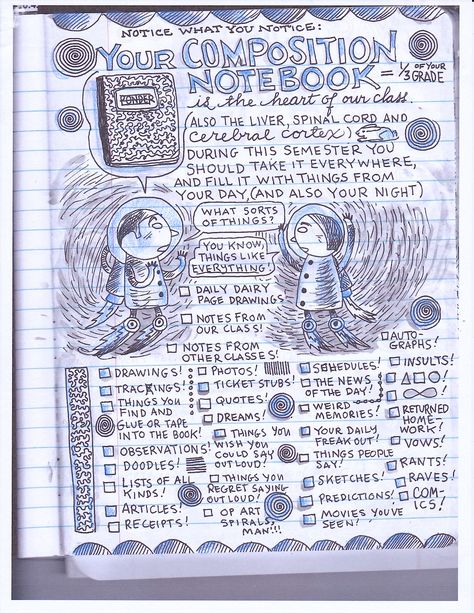 NOTICE WHAT YOU NOTICE:
YOUR COMPOSITION
NOTEBOOK = 1/3 OF YOUR GRADE
PONDER
is the heart of our class.
(ALSO THE LIVER, SPINAL CORD AND
cerebral cortex)
DURING THIS SEMESTER YOU
SHOULD TAKE IT EVERYWHERE,
AND FILL IT WITH THINGS FROM
YOUR DAY, (AND ALSO YOUR NIGHT)
WHAT SORTS
OF THINGS?
YOU KNOW,
THINGS LIKE
EVERYTHING!
DAILY DAIRY
PAGE DRAWINGS
NOTES FROM
OUR CLASS!
NOTES FROM
OTHER CLASSES!
DRAWINGS!
TRACKINGS!
THINGS YOU
FIND AND
GLUE OR TAPE
INTO THE BOOK!
OBSERVATIONS!
DOODLES!
LISTS OF ALL
KINDS!
ARTICLES!
RECEIPTS!
PHOTOS!
TICKET STUBS!
QUOTES!
DREAMS!
THINGS YOU
WISH YOU
COULD SAY
OUT LOUD!
THINGS YOU
REGRET SAYING
OUT LOUD!
OP ART
SPIRALS,
MAN!!!
SCHEDULES!
THE NEWS
OF THE DAY!
WEIRD
MEMORIES!
YOUR DAILY
FREAK OUT!
THINGS PEOPLE
SAY!
SKETCHES!
PREDICTIONS!
MOVIES YOU'VE
SEEN!
AUTO-
GRAPHS!
INSULTS!
RETURNED
HOME-
WORK!
VOWS!
RANTS!
RAVES!
COM-
ICS!